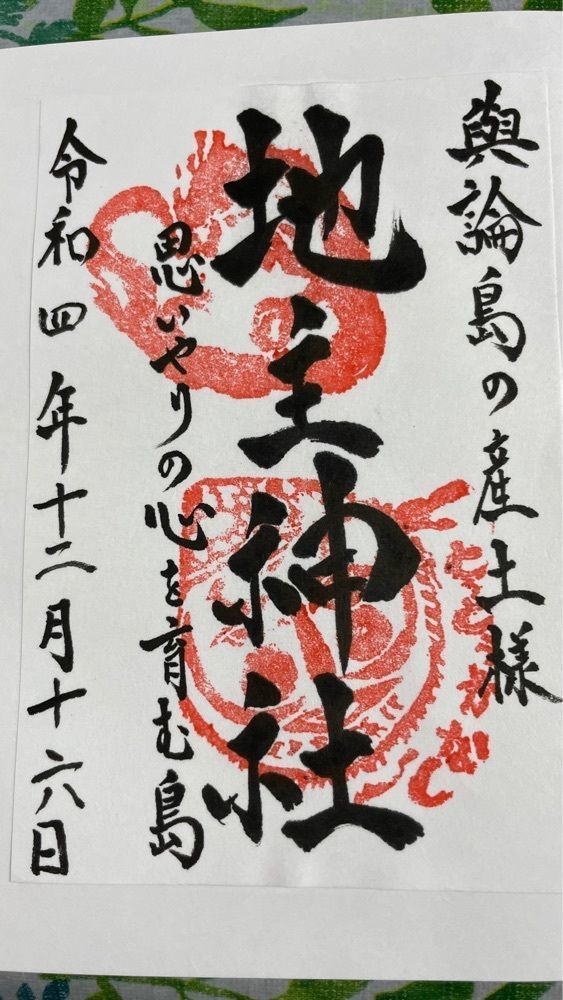 與論島の産土様
地主神社
思いやりの心を育む島
令和四年十二月十六日